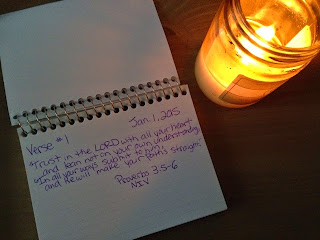 Jan. 1, 2015
Verse #1
"Trust in the LORD with all your heart
and lean not on your own understanding.
"In all your ways submit to him,
and He will make your paths straight."
Proverbs 3:5-6
NIV